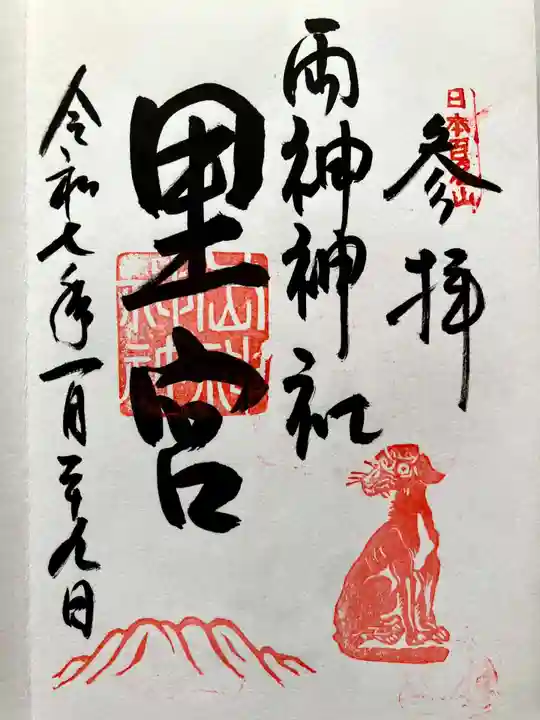 日本百名山
参拝
両神神社
里宮
令和七年一月二十九日